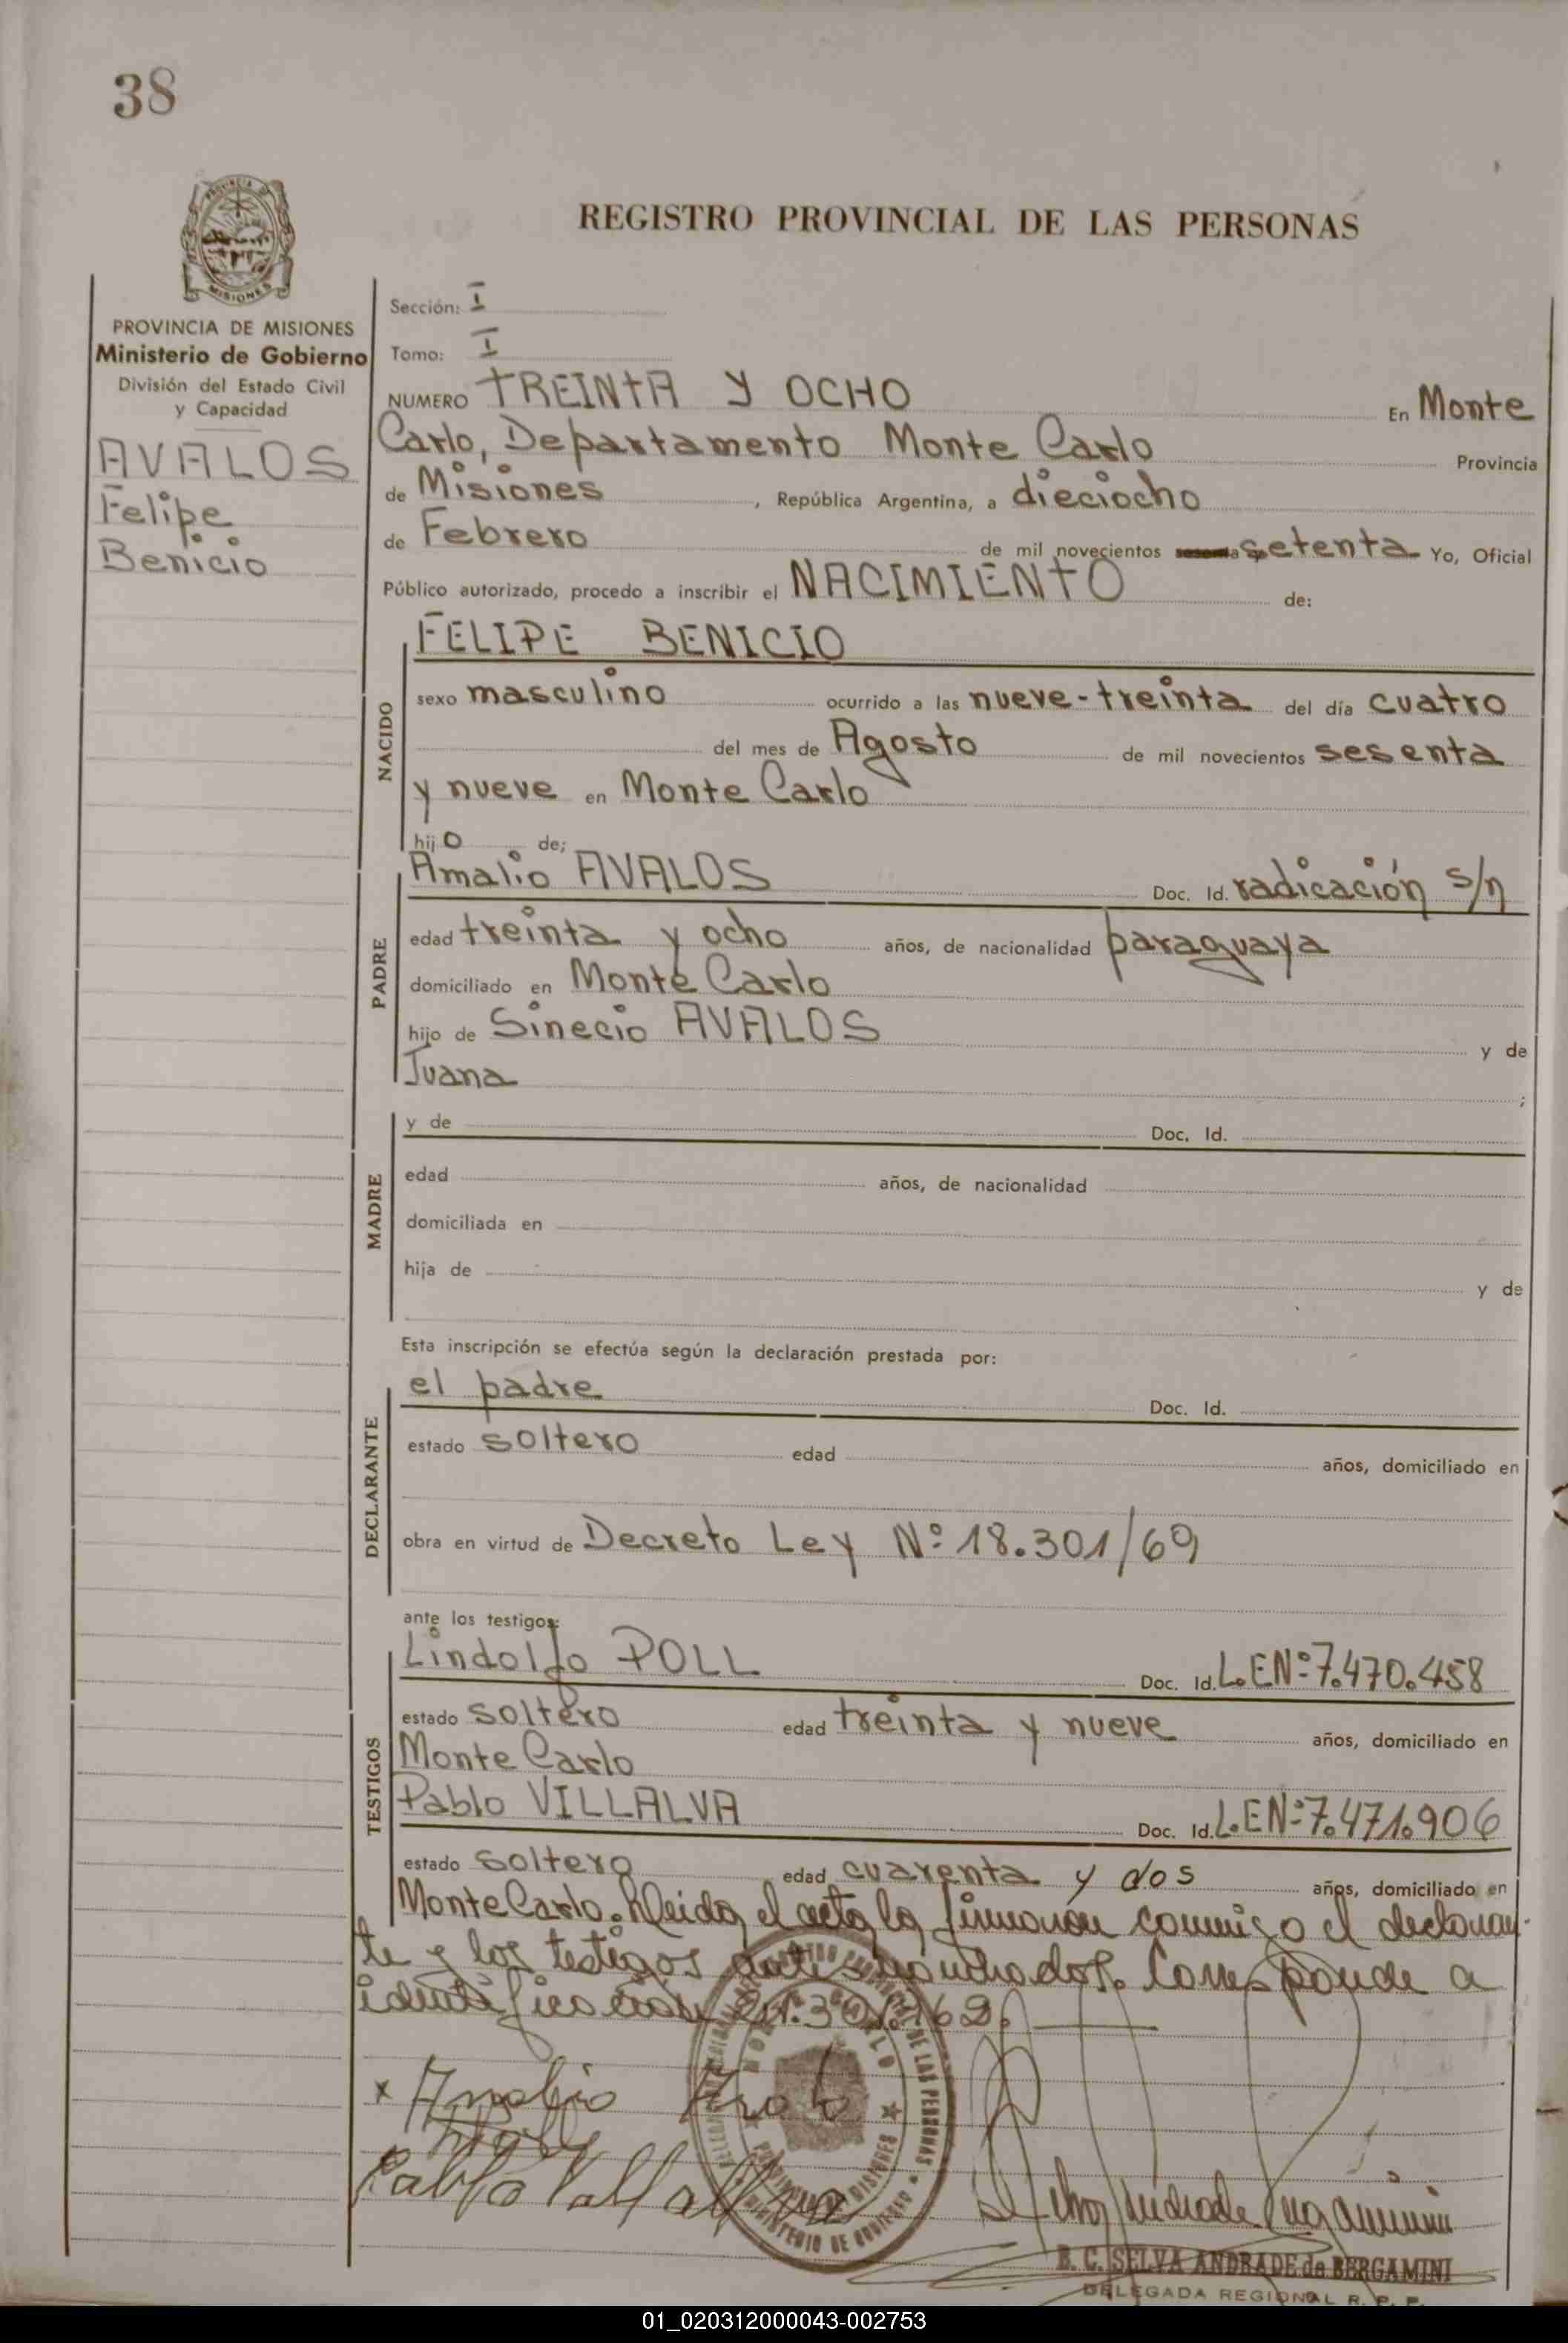 38
REGISTRO PROVINCIAL DE LAS PERSONAS
PROVINCIA DE MISIONES
Ministerio de Gobierno
División del Estado Civil
y Capacidad
AVALOS
Felipe
Benicio
Sección: I
Tomo: I
NUMERO TREINTA Y OCHO En Monte
Carlo, Departamento Monte Carlo Provincia
de Misiones, República Argentina, a dieciocho
de Febrero de mil novecientos setenta Yo, Oficial
Público autorizado, procedo a inscribir el NACIMIENTO de:
NACIDO
FELIPE BENICIO
sexo masculino ocurrido a las nueve-treinta del día cuatro
del mes de Agosto de mil novecientos sesenta
y nueve en Monte Carlo
hijo de;
PADRE
Amalio AVALOS Doc. Id. radicación s/n
edad treinta y ocho años, de nacionalidad paraguaya
domiciliado en Monte Carlo
hijo de Sinecio AVALOS y de
Juana ;
MADRE
y de Doc. Id.
edad años, de nacionalidad
domiciliada en
hija de y de
Esta inscripción se efectúa según la declaración prestada por:
DECLARANTE
el padre Doc. Id.
estado soltero edad años, domiciliado en
obra en virtud de Decreto Ley Nº 18.301/69
ante los testigos:
TESTIGOS
Lindolfo POLL Doc. Id. L.E Nº 7.470.458
estado soltero edad treinta y nueve años, domiciliado en
Monte Carlo
Pablo VILLALVA Doc. Id. L.E Nº 7.471.906
estado soltero edad cuarenta y dos años, domiciliado en
Monte Carlo. Leida el acta la firmaron conmigo el declaran-
te y los testigos antes nombrados. Corresponde a
identificación
x Amalio
Pablo Villalva
B. C. SELVA ANDRADE de BERGAMINI
DELEGADA REGIONAL R. P. P.
01_020312000043-002753